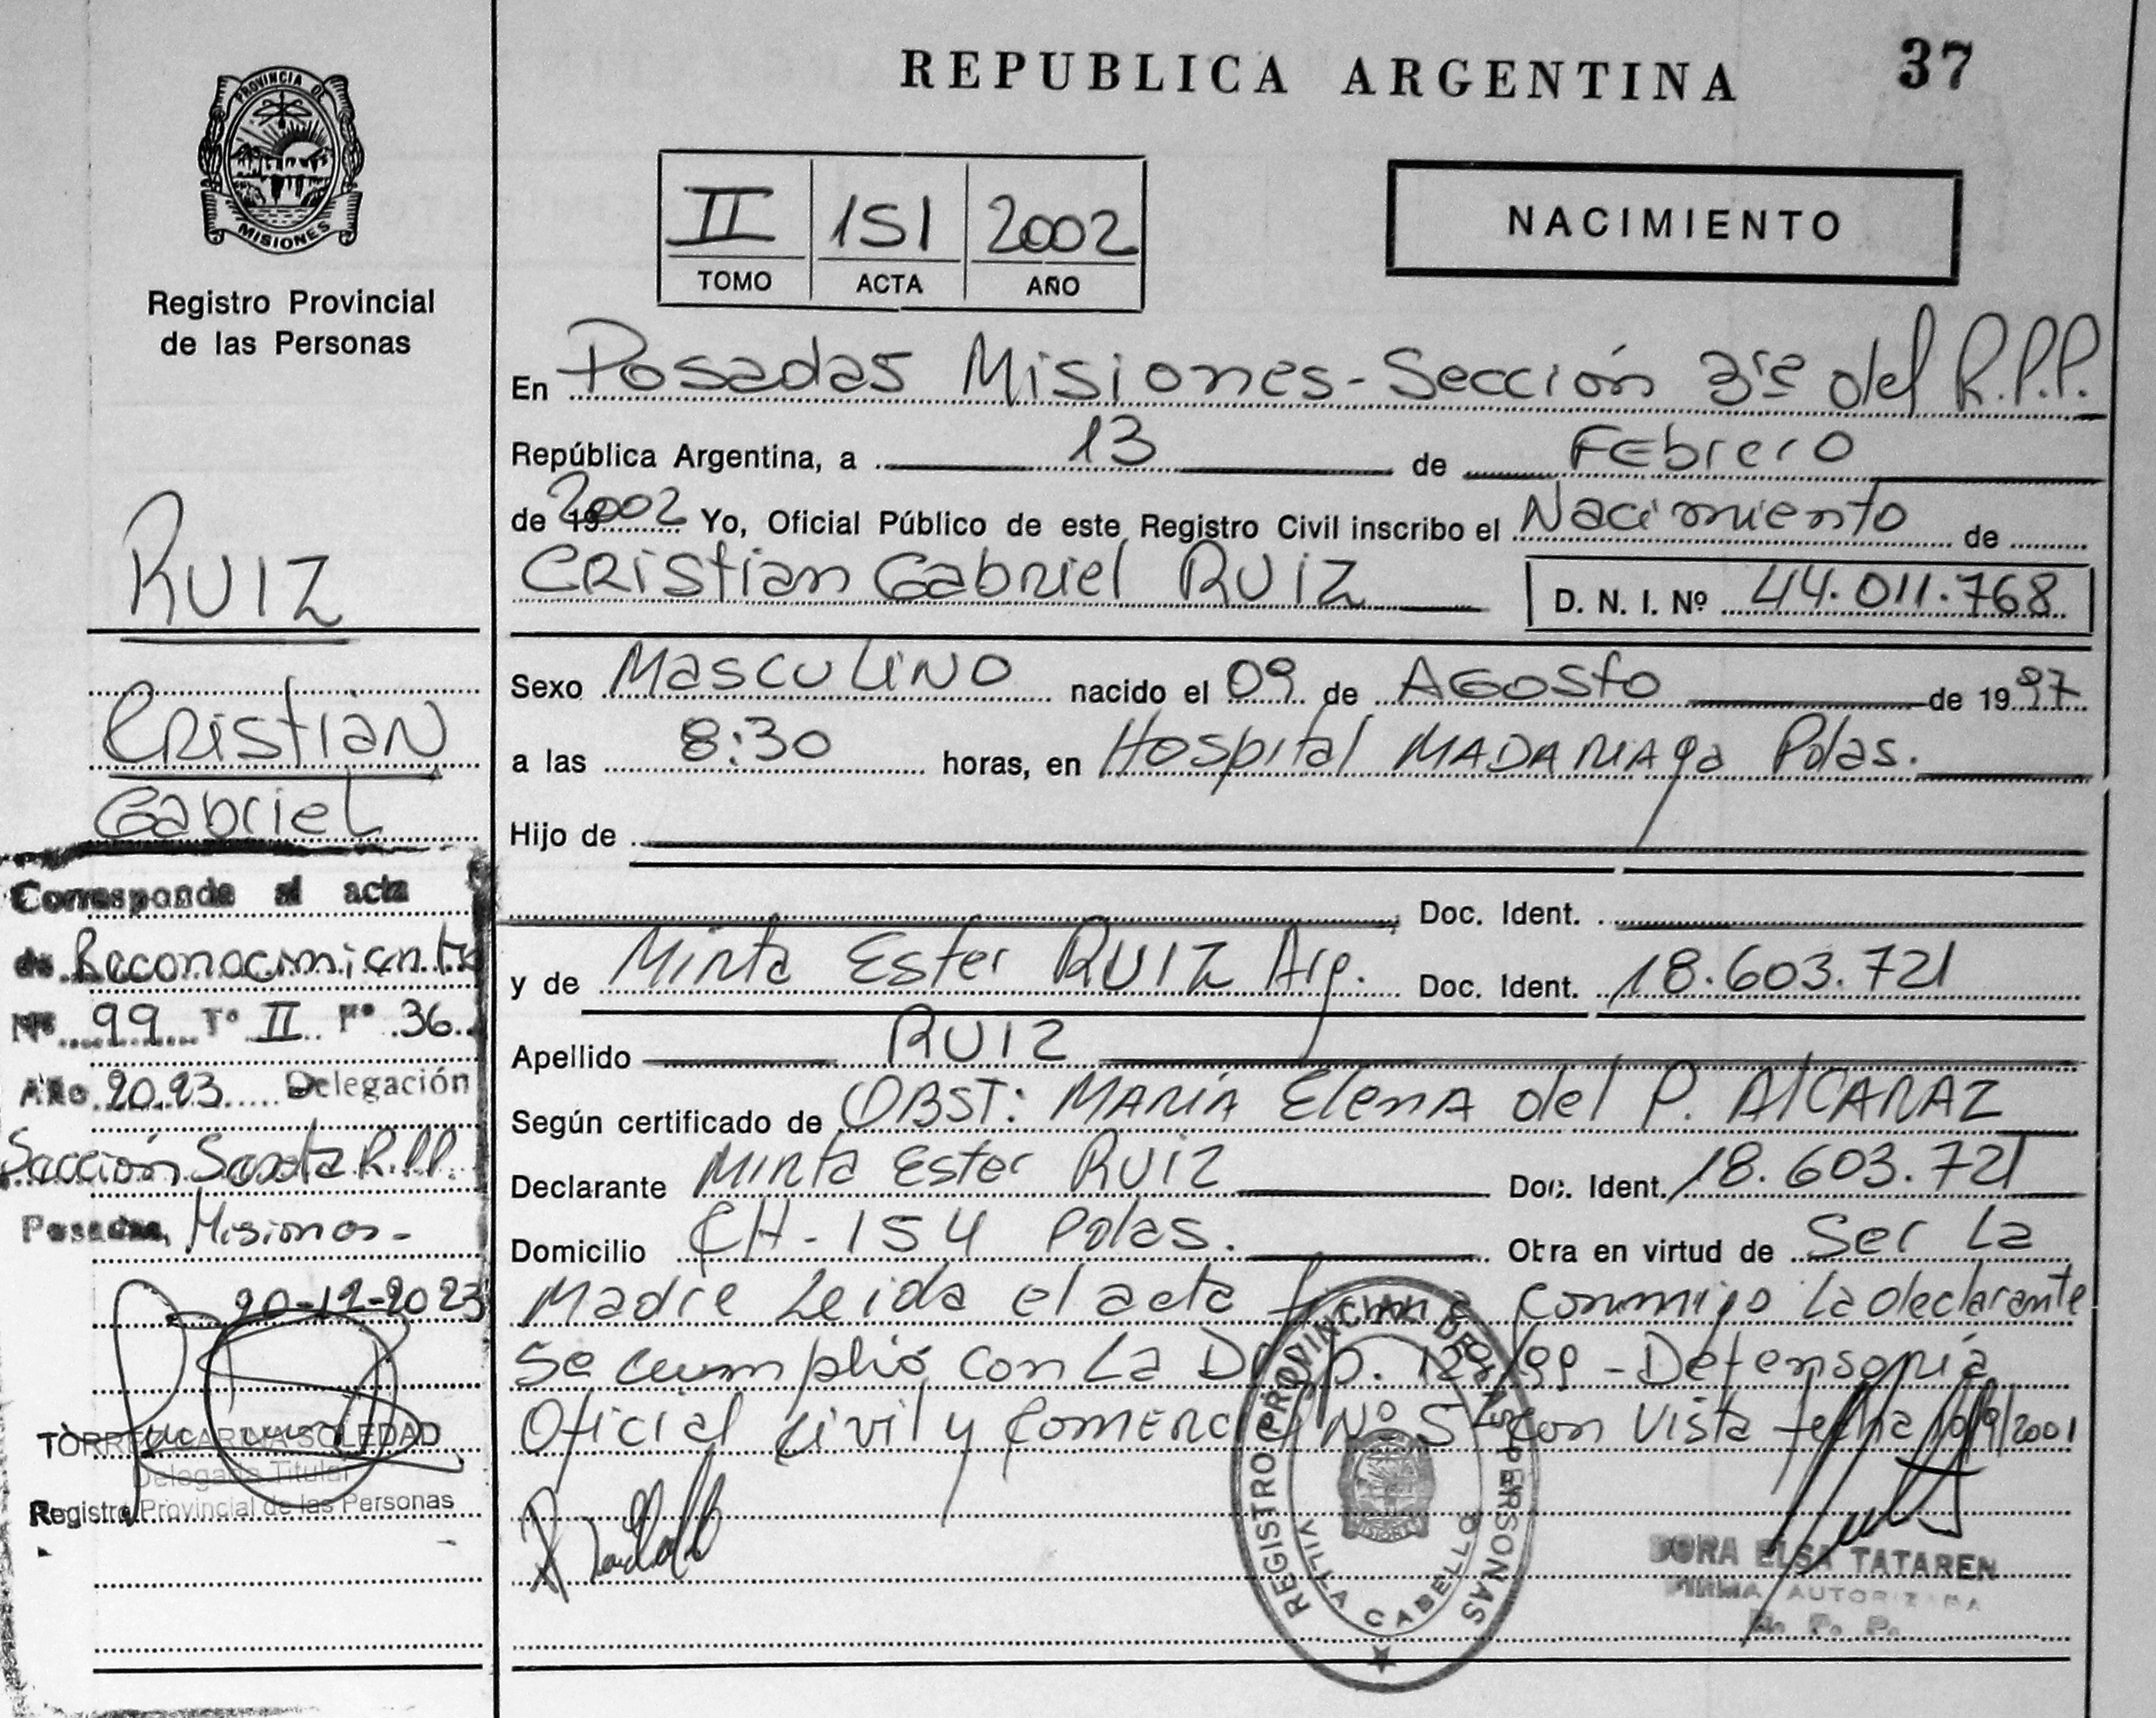 REPUBLICA ARGENTINA 37
PROVINCIA DE MISIONES
Registro Provincial
de las Personas
II 151 2002
TOMO ACTA AÑO
NACIMIENTO
En Posadas Misiones-Sección 3ra del R.P.P.
República Argentina, a 13 de Febrero
de 19 2002 Yo, Oficial Público de este Registro Civil inscribo el Nacimiento de
Cristian Gabriel RUIZ D. N. I. Nº 44.011.768
Sexo Masculino nacido el 09 de Agosto de 1997
a las 8:30 horas, en Hospital Madariaga Pdas.
Hijo de
Doc. Ident.
y de Mirta Ester RUIZ Arg. Doc. Ident. 18.603.721
Apellido RUIZ
Según certificado de OBST: María Elena del P. Alcaraz
Declarante Mirta Ester Ruiz Doc. Ident. 18.603.721
Domicilio CH-154 Pdas. Obra en virtud de Ser La
Madre Leida el acta firma conmigo La declarante
Se cumplió con La Disp. 128/99 - Defensoría
Oficial Civil y Comercial Nº 5 con Vista fecha 10/9/2001
REGISTRO PROVINCIAL DE LAS PERSONAS
VILLA CABELLO
DORA ELSA TATAREN
FIRMA AUTORIZADA
R. P. P.
RUIZ
Cristian
Gabriel
Corresponde al acta
de Reconocimiento
Nº 99 Tº II Fº 36
Año 2023 Delegación
Sección Sexta R.P.P.
Posadas, Misiones-
20-12-2023
SOLEDAD
Delegada Titular
Registro Provincial de las Personas